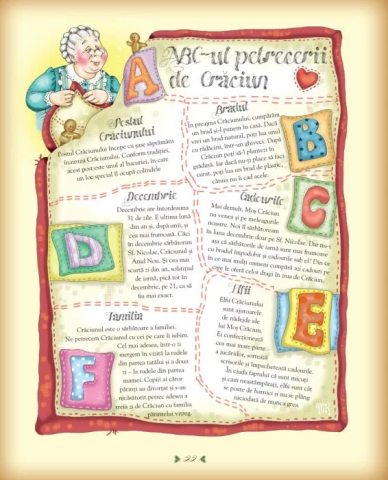 A
ABC-ul petrecerii
de Crăciun
Postul
Crăciunului
Postul Crăciunului începe cu șase săptămâni
înaintea Crăciunului. Conform tradiției,
acest post este unul al bucuriei, în care
un loc special îl ocupă colindele
Bradul
În preajma Crăciunului, cumpărăm
un brad și-l punem în casă. Dacă
vrei un brad natural, poți lua unul
cu rădăcini, într-un ghiveci. După
Crăciun poți să-l plantezi în
grădină. Iar dacă nu-ți place să faci
curat, poți lua un brad de plastic,
căruia nu îi cad acele.
B
Cadourile
Mai demult, Moș Crăciun
nu venea și pe meleagurile
noastre. Noi îl sărbătoream
în luna decembrie doar pe Sf. Nicolae. Dar nu-i
așa că sărbătorile de iarnă sunt mai frumoase
cu bradul împodobit și cadourile sub el? Din ce
în ce mai mulți oameni cumpără azi cadouri pe
care le oferă celor dragi în ziua de Crăciun.
C
Decembrie
Decembrie are întotdeauna
31 de zile. E ultima lună
din an și, după unii, și
cea mai frumoasă. Căci
în decembrie sărbătorim
Sf. Nicolae, Crăciunul și
Anul Nou. Și cea mai
scurtă zi din an, solstițiul
de iarnă, pică tot în
decembrie, pe 21, ca să
fiu mai exact.
D
Elfii
Elfii Crăciunului
sunt ajutoarele
de nădejde ale
lui Moș Crăciun.
Ei confecționează
cea mai mare parte
a jucăriilor, sortează
scrisorile și împachetează cadourile.
În ciuda faptului că sunt micuți
și cam neastâmpărați, elfii sunt cât
se poate de harnici și nu se plâng
niciodată de munca grea.
E
Familia
Crăciunul este o sărbătoare a familiei.
Ne petrecem Crăciunul cu cei pe care îi iubim.
Cel mai adesea, într-o zi
mergem în vizită la rudele
din partea tatălui și a doua
zi – la rudele din partea
mamei. Copiii ai căror
părinți au divorțat și s-au
recăsătorit petrec adesea a
treia zi de Crăciun cu familia
părintelui vitreg.
F